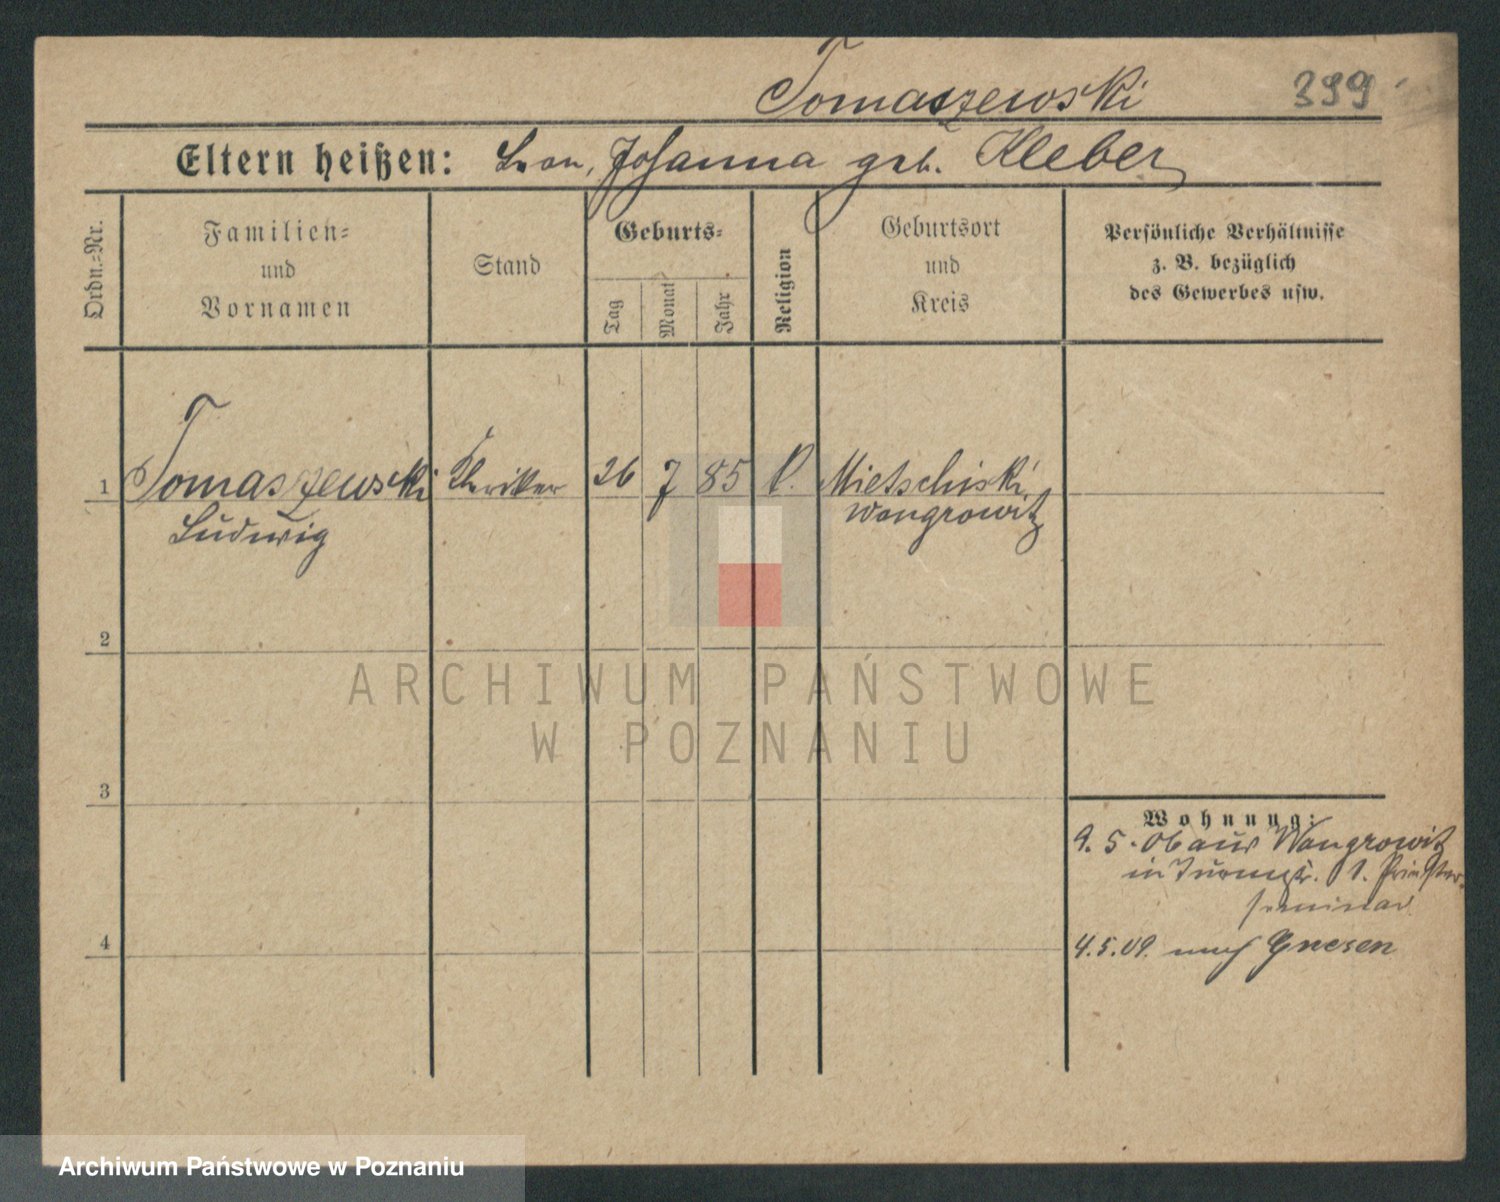 Tomaszewski 399
Eltern heißen: Leon, Johanna geb. Kleber
Ordn.-Nr.
Familien-
und
Vornamen
Stand
Geburts-
Tag
Monat
Jahr
Religion
Geburtsort
und
Kreis
Persönliche Verhältnisse
z. B. bezüglich
des Gewerbes usw.
1 Tomaszewski Kleriker 26 7 85 k. Mietschiski,
Ludwig Wongrowitz
2
3
4
Wohnung:
9. 5. 06 aus Wongrowitz
in 1. Priester-
seminar
4.5.09. nach Gnesen
ARCHIWUM PAŃSTWOWE
W POZNANIU
Archiwum Państwowe w Poznaniu